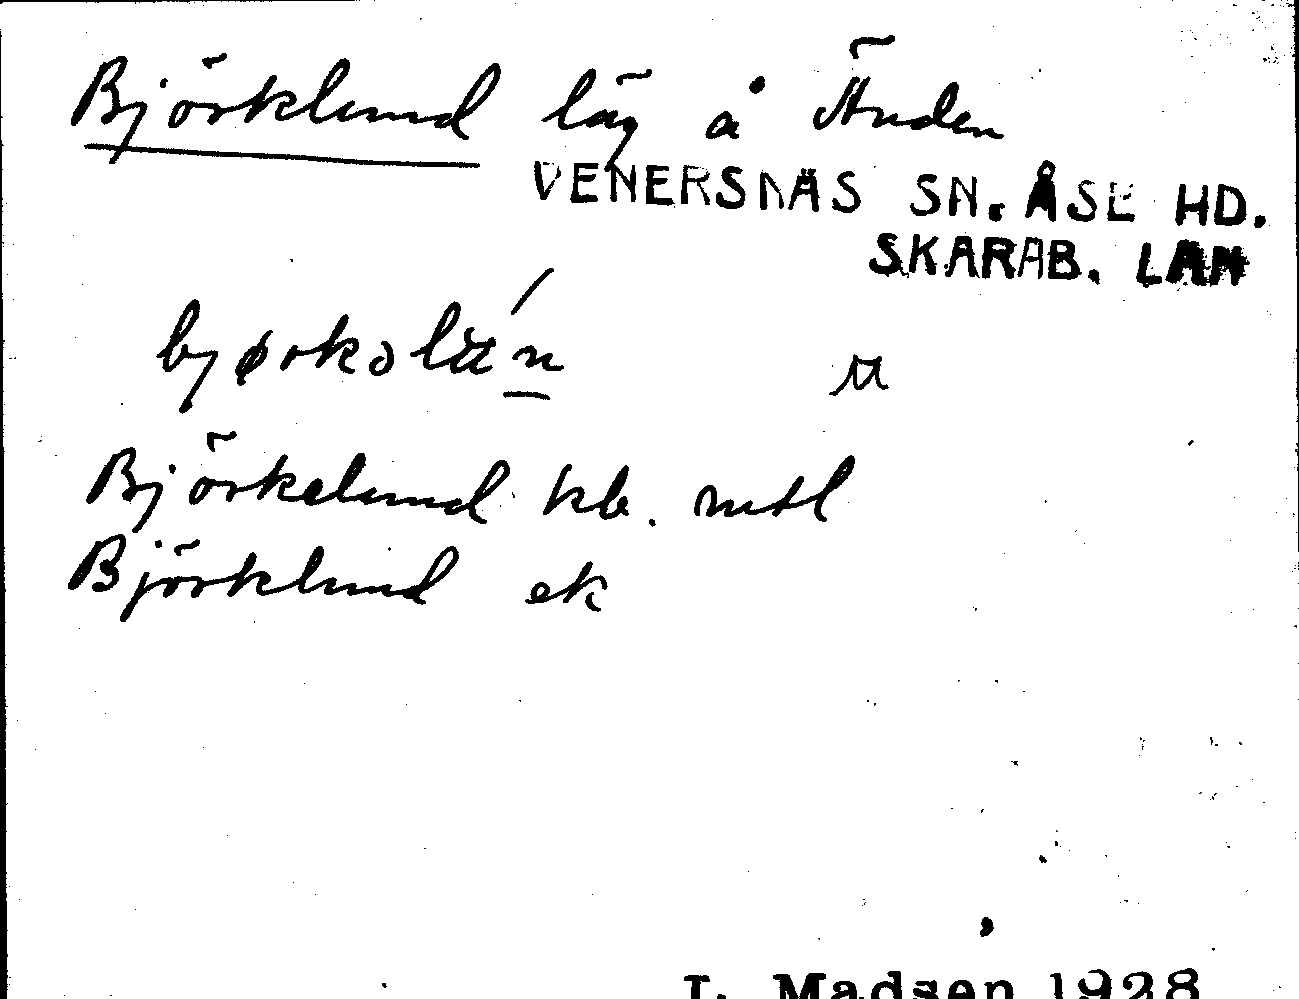 Björklund läg å Änden
VENERSNÄS SN. ÅSE HD.
SKARAB. LÄN
Björkelund kb. mtl
Björklund ek
L. Madsen 1928